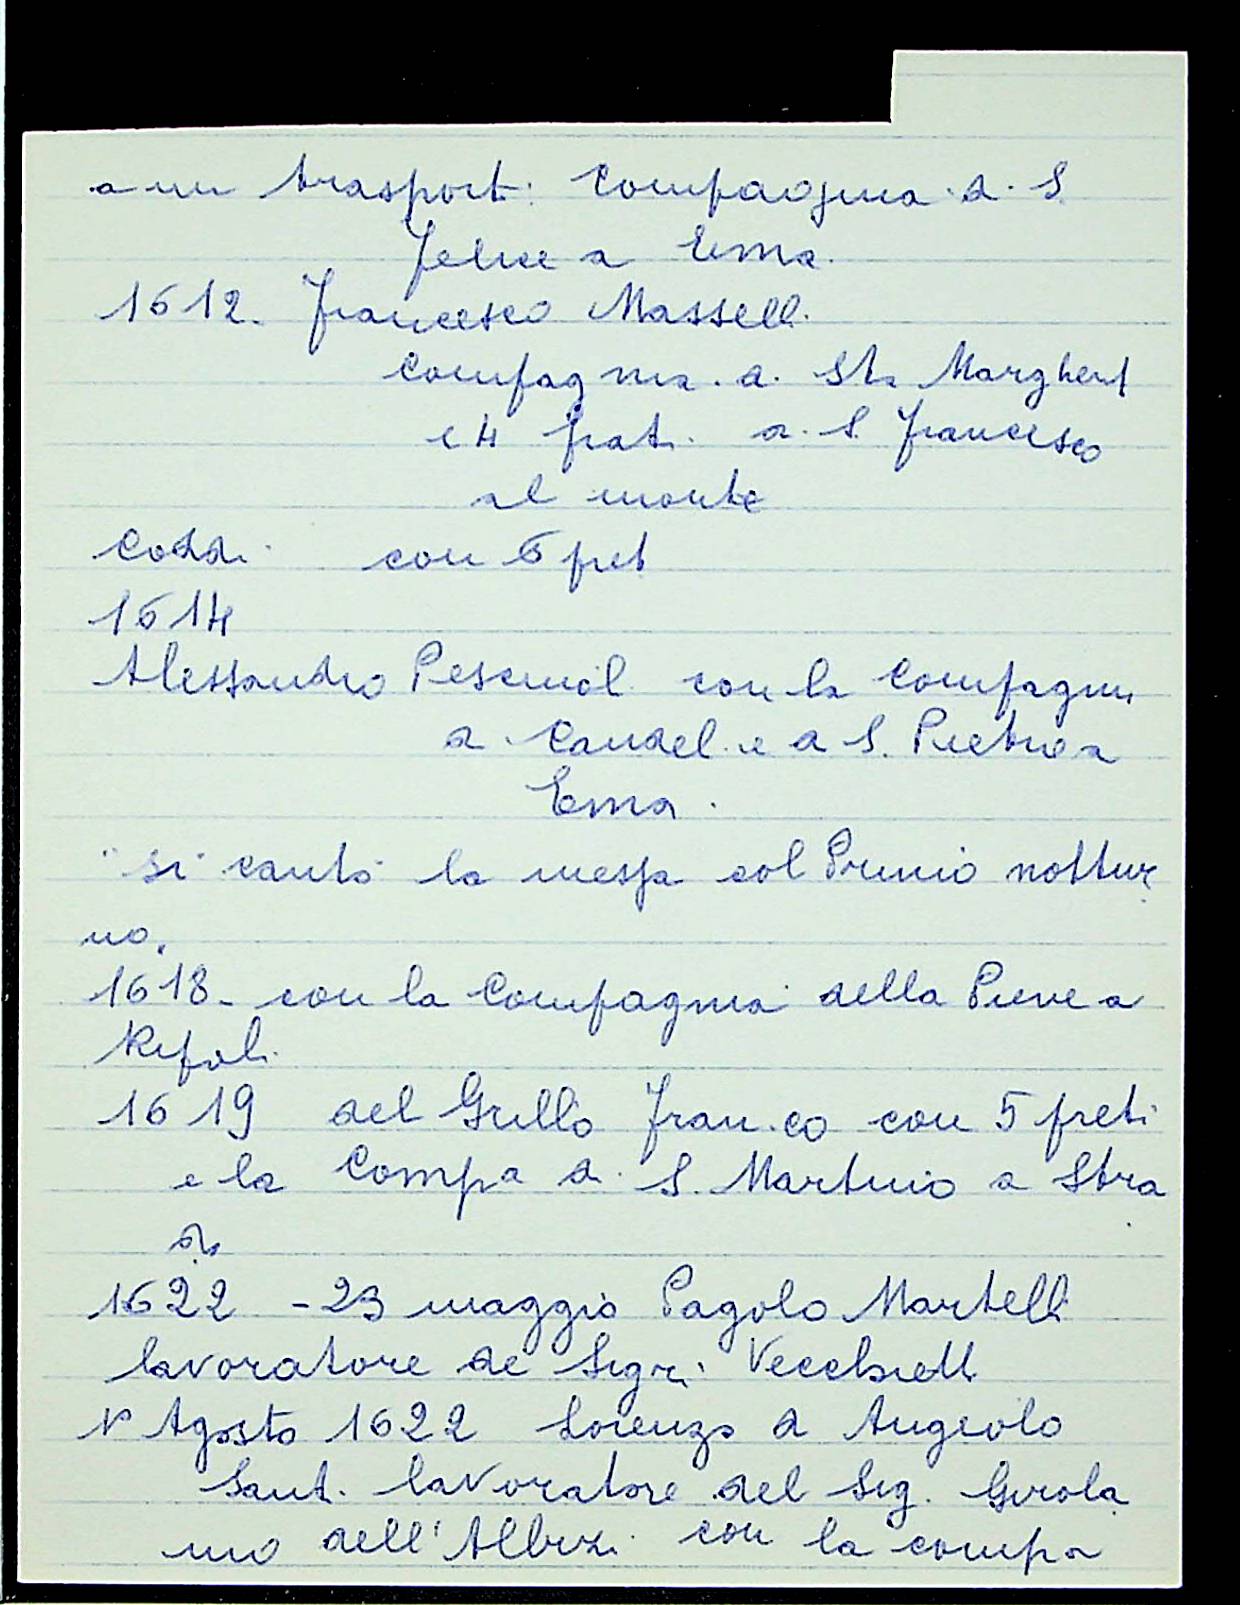 a un trasporti Compagnia di S.
Felice a Ema.
1612. Francesco Masselli
Compagnia di Sta Margherit
e 4 frati di S. Francesco
al monte
Coddi con 6 preti
1614
Alessandro con la Compagni
a Candeli e a S. Pietro a
Ema.
"si cantò la messa col Primo nottur
no.
1618 - con la Compagnia della Pieve a
Ripoli
1619 del Grillo Fran.co con 5 preti
e la Compa di S. Martino a Stra
da
1622 - 23 maggio Pagolo Martelli
lavoratore de Sigri Vecchietti
1º Agosto 1622 Lorenzo di Angiolo
Santi lavoratore del Sig. Girola
mo dell'Albizi con la compa